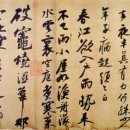 夜半真有力何殊
年子病起頭已
春江欲入戶雨勢來
不已雨小屋如漁舟濛
水雲裏空庖煮寒菜
破竈燒濕葦那